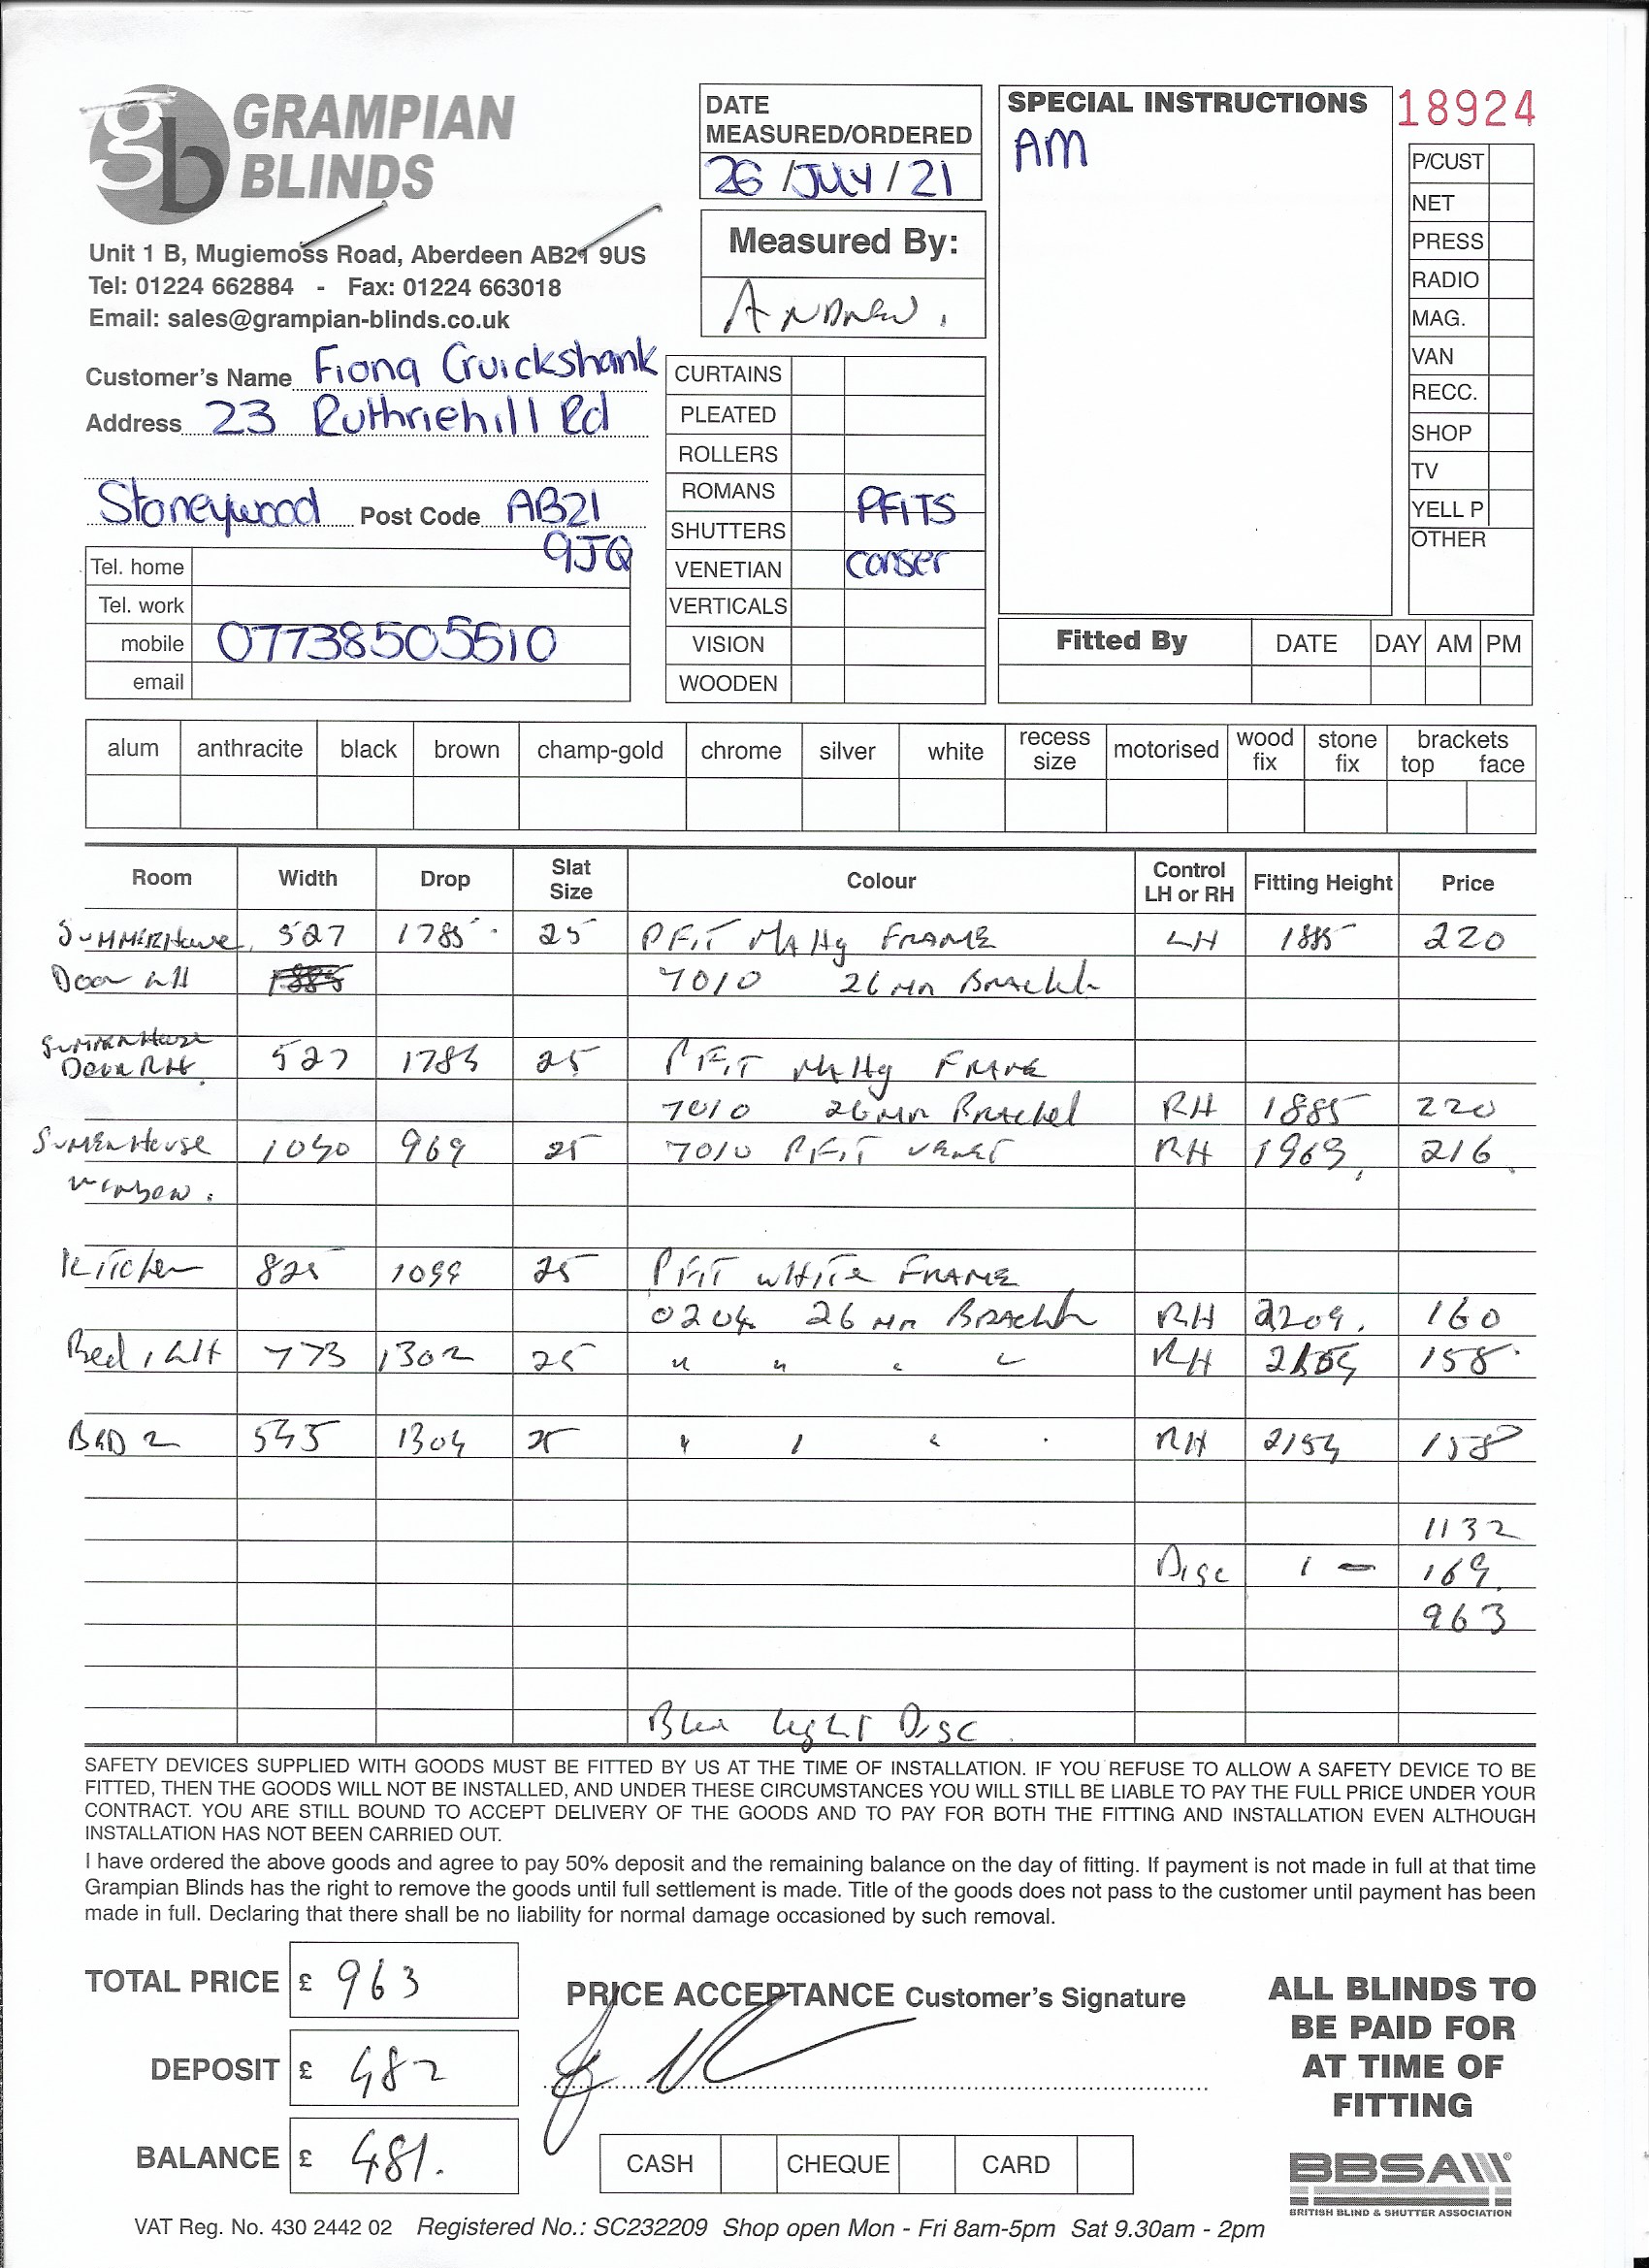 gb GRAMPIAN BLINDS
Unit 1 B, Mugiemoss Road, Aberdeen AB21 9US
Tel: 01224 662884 - Fax: 01224 663018
Email: sales@grampian-blinds.co.uk
DATE
MEASURED/ORDERED
26 / JULY / 21
Measured By:
ANDREW.
SPECIAL INSTRUCTIONS
AM
18924
P/CUST
NET
PRESS
RADIO
MAG.
VAN
RECC.
SHOP
TV
YELL P
OTHER
Customer's Name Fiona Cruickshank
Address 23 Ruthriehill Rd
Stoneywood Post Code AB21
9JQ
Tel. home
Tel. work
mobile 07738505510
email
CURTAINS
PLEATED
ROLLERS
ROMANS PFITS
SHUTTERS
VENETIAN conser
VERTICALS
VISION
WOODEN
Fitted By DATE DAY AM PM
alum anthracite black brown champ-gold chrome silver white recess size motorised wood fix stone fix brackets top face
Room Width Drop Slat Size Colour Control LH or RH Fitting Height Price
SUMMERHouse 527 1785 25 PFIT MAHg FRAME LH 1885 220
Door LH 7010 26mm Brackets
SUMMERHouse
Door RH 527 1785 25 PFIT MAHg FRAME
7010 26mm Bracket RH 1885 220
SUMMERHouse 1050 969 25 7010 PFIT VENET RH 1969 216
Window.
Kitchen 825 1099 25 PFIT WHITE FRAME
0204 26mm Brackets RH 2209 160
Bed 1 LH 773 1302 25 " " " " RH 158
BED 2 545 1304 25 " " " RH 2154 158
1132
Disc 1 - 169
963
Disc
SAFETY DEVICES SUPPLIED WITH GOODS MUST BE FITTED BY US AT THE TIME OF INSTALLATION. IF YOU REFUSE TO ALLOW A SAFETY DEVICE TO BE
FITTED, THEN THE GOODS WILL NOT BE INSTALLED, AND UNDER THESE CIRCUMSTANCES YOU WILL STILL BE LIABLE TO PAY THE FULL PRICE UNDER YOUR
CONTRACT. YOU ARE STILL BOUND TO ACCEPT DELIVERY OF THE GOODS AND TO PAY FOR BOTH THE FITTING AND INSTALLATION EVEN ALTHOUGH
INSTALLATION HAS NOT BEEN CARRIED OUT.
I have ordered the above goods and agree to pay 50% deposit and the remaining balance on the day of fitting. If payment is not made in full at that time
Grampian Blinds has the right to remove the goods until full settlement is made. Title of the goods does not pass to the customer until payment has been
made in full. Declaring that there shall be no liability for normal damage occasioned by such removal.
TOTAL PRICE £ 963
DEPOSIT £ 482
BALANCE £ 481.
PRICE ACCEPTANCE Customer's Signature
CASH CHEQUE CARD
ALL BLINDS TO
BE PAID FOR
AT TIME OF
FITTING
BBSA
BRITISH BLIND & SHUTTER ASSOCIATION
VAT Reg. No. 430 2442 02 Registered No.: SC232209 Shop open Mon - Fri 8am-5pm Sat 9.30am - 2pm